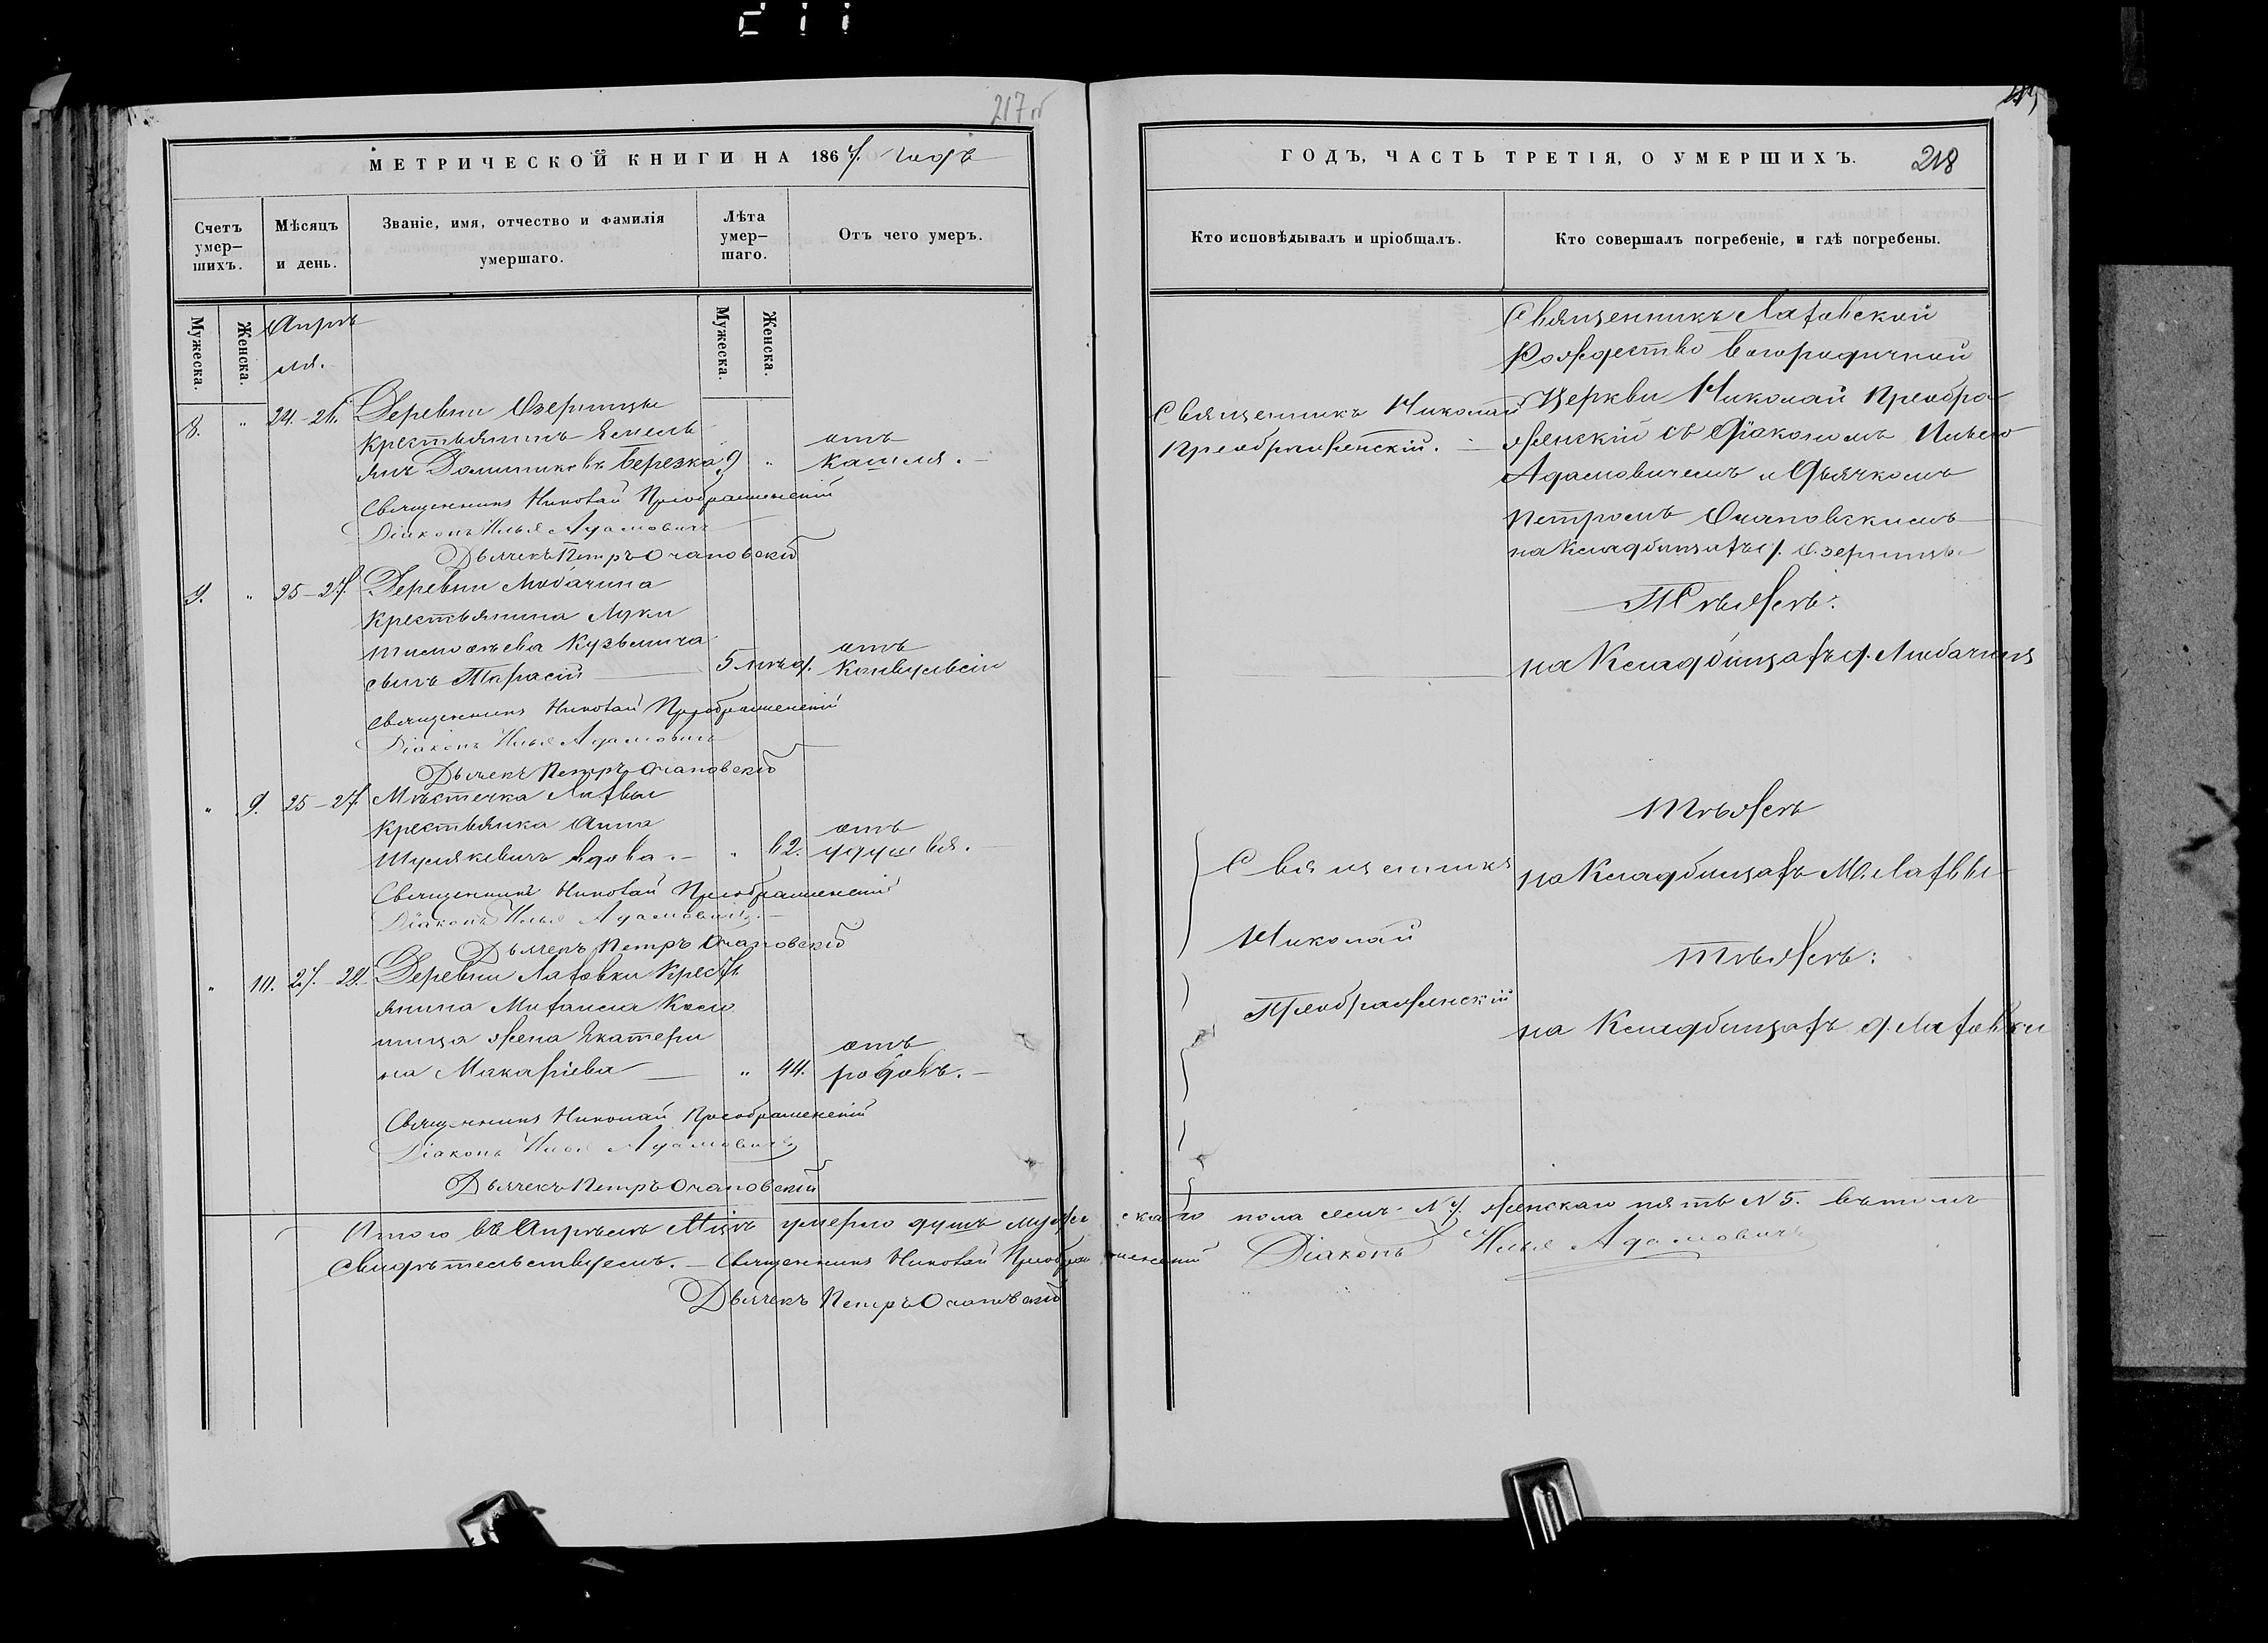 217об
МЕТРИЧЕСКОЙ КНИГИ НА 1867. годъ
Счетъ умер-шихъ.
Мѣсяцъ и день.
Званіе, имя, отчество и фамилія умершаго.
Лѣта умер-шаго.
Отъ чего умеръ.
Мужеска.
Женска.
Мужеска.
Женска.
Апрѣ
ля.
8. " 24.-26. Деревни Озерницы
крестьянинъ Емель
янъ Доминиковъ Березка 9 " отъ кашля.-
Священникъ Николай Преображенскій
Діаконъ Илья Адамовичъ
Дьячекъ Петръ Очаповскій
9. " 25-27. Деревни Любачина
крестьянина Луки
Тимофѣева Кузьмича
сынъ Тарасій 5 отъ Конвульсіи
Священникъ Николай Преображенскій
Діаконъ Илья Адамовичъ
Дьячекъ Петръ Очаповскій
" 9. 25-27 Мѣстечка Лахвы
крестьянка Анна
вдова.- " 62. отъ удушья.
Священникъ Николай Преображенскій
Діаконъ Илья Адамовичъ.
Дьячекъ Петръ Очаповскій
" 10. 27.-29. Деревни Лаховки Кресть
янина Михаила
жена Екатери
на Макаріева " 44. отъ родовъ.-
Священникъ Николай Преображенскій
Діаконъ Илья Адамовичъ
Дьячекъ Петръ Очаповскій
Итого въ Апрѣлѣ Мцѣ умерло душъ мужескаго пола семь N 7. женскаго пять N 5. въ томъ
свидѣтельствуемъ.- Священникъ Николай Преображенскій Діаконъ Илья Адамовичъ
Дьячекъ Петръ Очаповскій
ГОДЪ, ЧАСТЬ ТРЕТІЯ, О УМЕРШИХЪ.
218
Кто исповѣдывалъ и пріобщалъ.
Кто совершалъ погребеніе, и гдѣ погребены.
Священникъ Николай
Преображенскій.
Священникъ Лаховской
Рождество Богородичной
Церкви Николай Преобра
женскій съ Діакономъ Ильею
Адамовичемъ и Дьячкомъ
Петромъ Очаповскимъ
на Кладбищахъ д. Озерницы
Тѣ же:
на Кладбищахъ д. Любачина
Тѣ же
Священникъ
на Кладбищахъ М. Лахвы
Николай
Тѣ же:
Преображенскій
на Кладбищахъ д. Лаховки